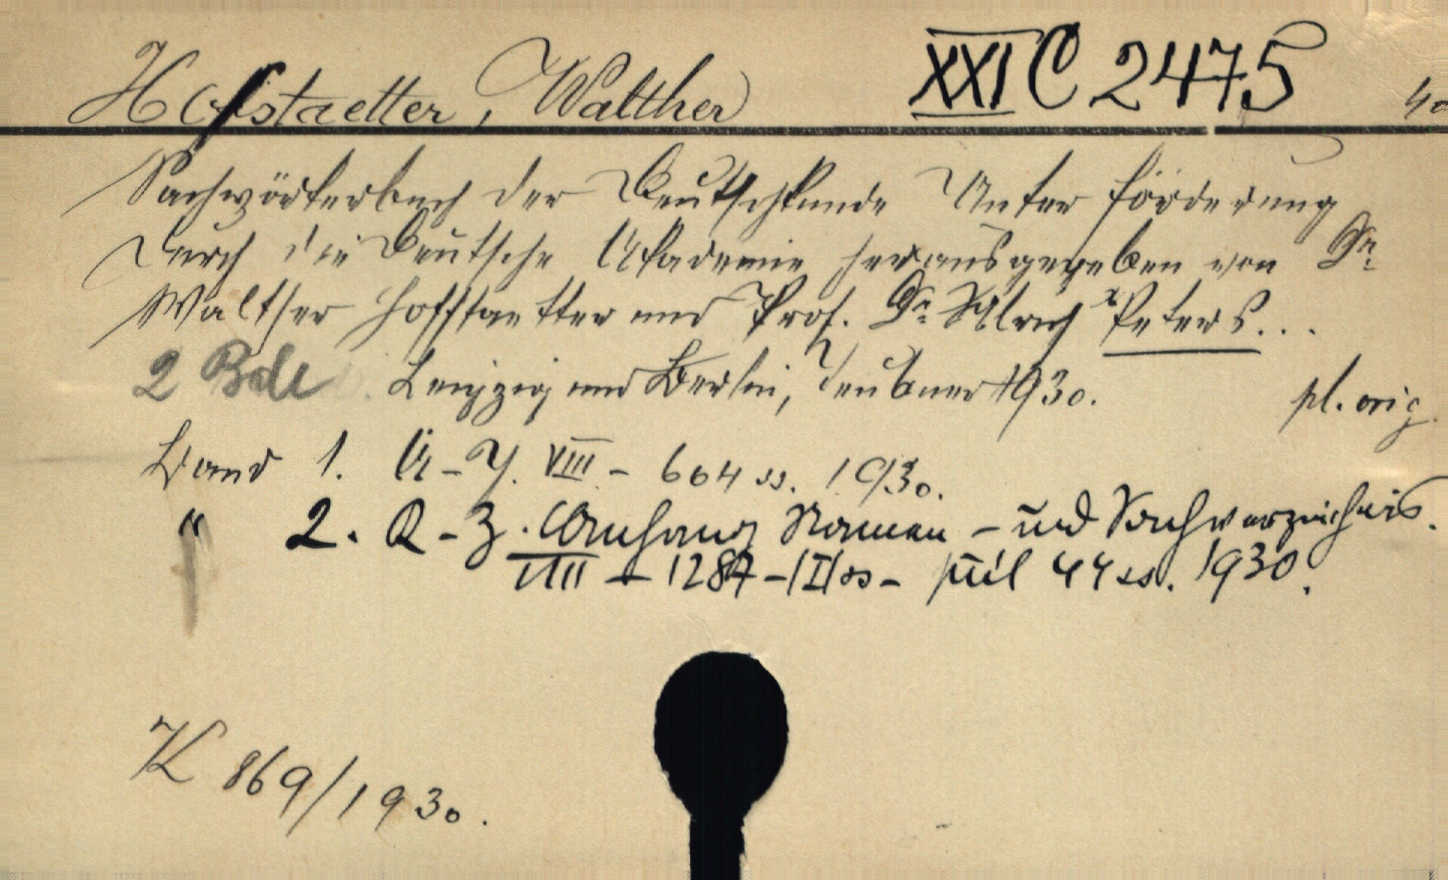 Hofstaetter, Walther XXI C 2475 4o
Sachwörterbuch der Deutschkunde Unter Förderung
durch die Deutsche Akademie herausgegeben von Dr.
Walther Hofstaetter und Prof. Dr. Ulrich Peters...
2 Bde Leipzig und Berlin, Teubner 1930. pl. orig.
Band 1. A-J. VIII - 604 ss. 1930.
" 2. K-Z. Anhang Namen - und Sachverzeichnis.
VIII - 1287 - II ss - 44 ss. 1930.
K 869/1930.